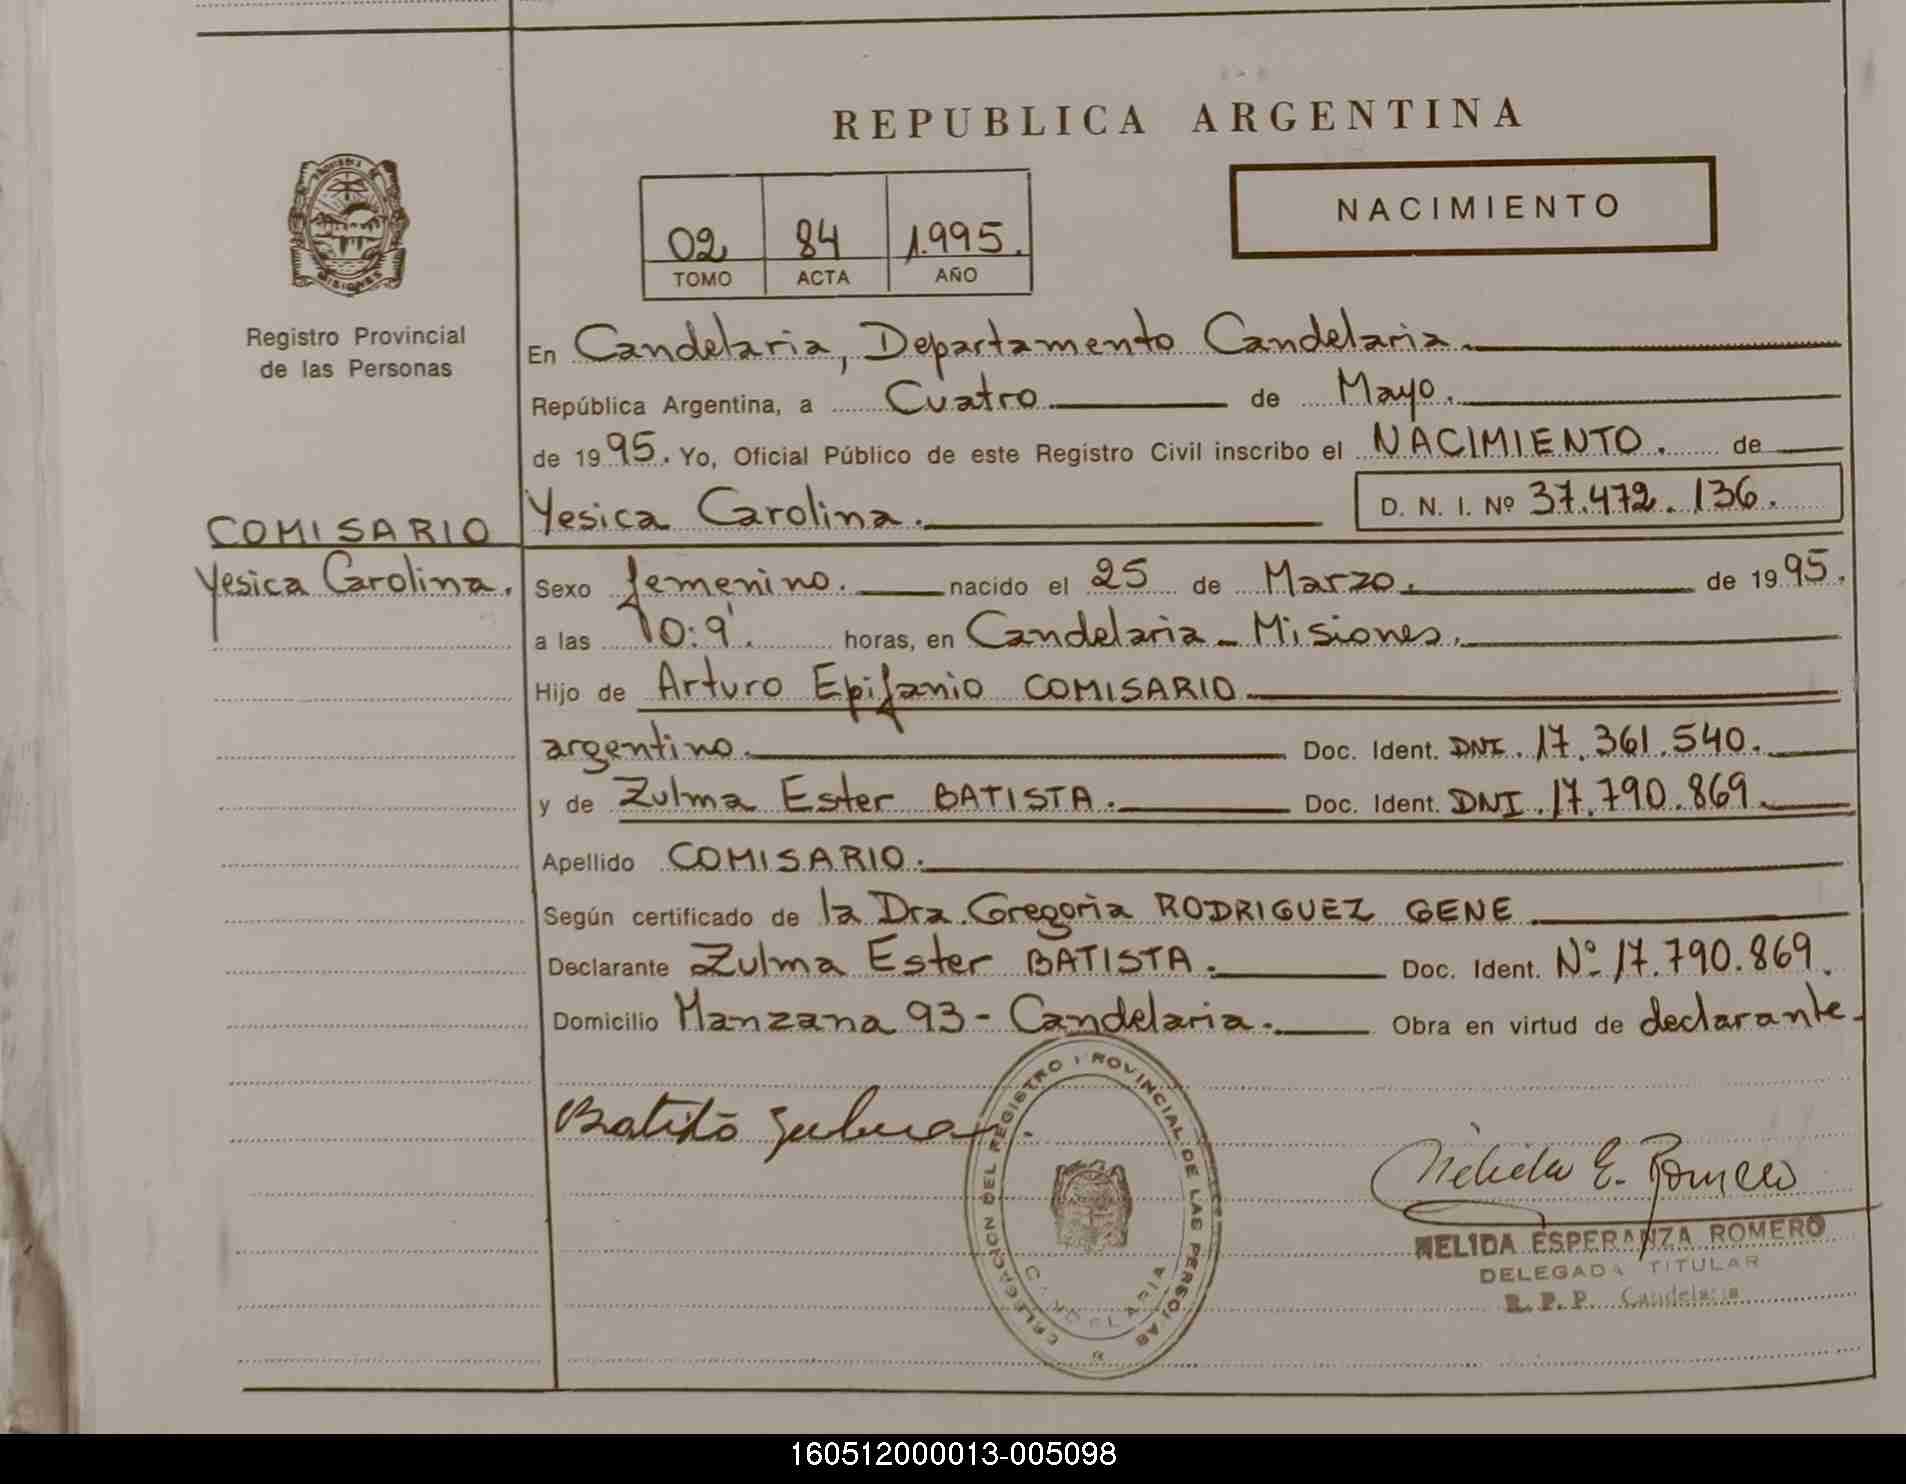 REPUBLICA ARGENTINA
NACIMIENTO
02 84 1.995.
TOMO ACTA AÑO
MISIONES
Registro Provincial
de las Personas
En Candelaria, Departamento Candelaria.
República Argentina, a Cuatro de Mayo.
de 1995. Yo, Oficial Público de este Registro Civil inscribo el NACIMIENTO. de
Yesica Carolina. D. N. I. Nº 37.472.136.
COMISARIO
Yesica Carolina.
Sexo femenino. nacido el 25 de Marzo. de 1995.
a las 10:9'. horas, en Candelaria - Misiones.
Hijo de Arturo Epifanio COMISARIO
argentino. Doc. Ident. DNI. 17.361.540.
y de Zulma Ester BATISTA. Doc. Ident. DNI. 17.790.869.
Apellido COMISARIO.
Según certificado de la Dra. Gregoria RODRIGUEZ GENE
Declarante Zulma Ester BATISTA. Doc. Ident. Nº 17.790.869.
Domicilio Manzana 93 - Candelaria. Obra en virtud de declarante.
DELEGACION DEL REGISTRO PROVINCIAL DE LAS PERSONAS
CANDELARIA
Nélida E. Romero
NELIDA ESPERANZA ROMERO
DELEGADA TITULAR
R.P.P. Candelaria
160512000013-005098